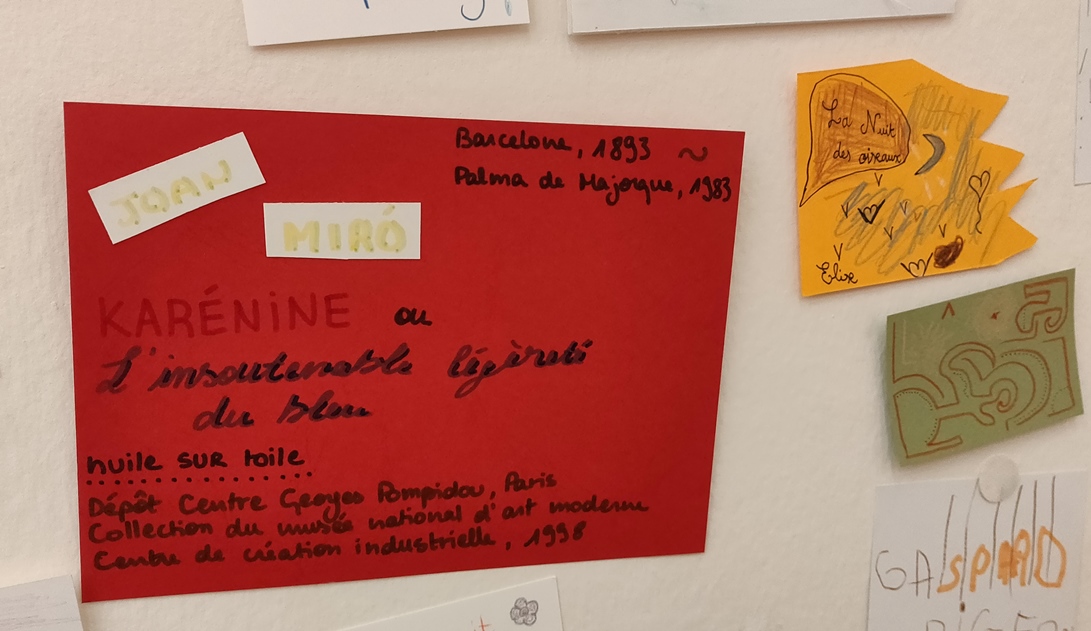 JOAN
MIRÓ
Barcelone, 1893 ~
Palma de Majorque, 1983
KARÉNINE ou
L'insoutenable légèreté
du bleu
huile sur toile
Dépôt Centre Georges Pompidou, Paris
Collection du musée national d'art moderne
Centre de création industrielle, 1998
La Nuit
des oiseaux
GASPARD